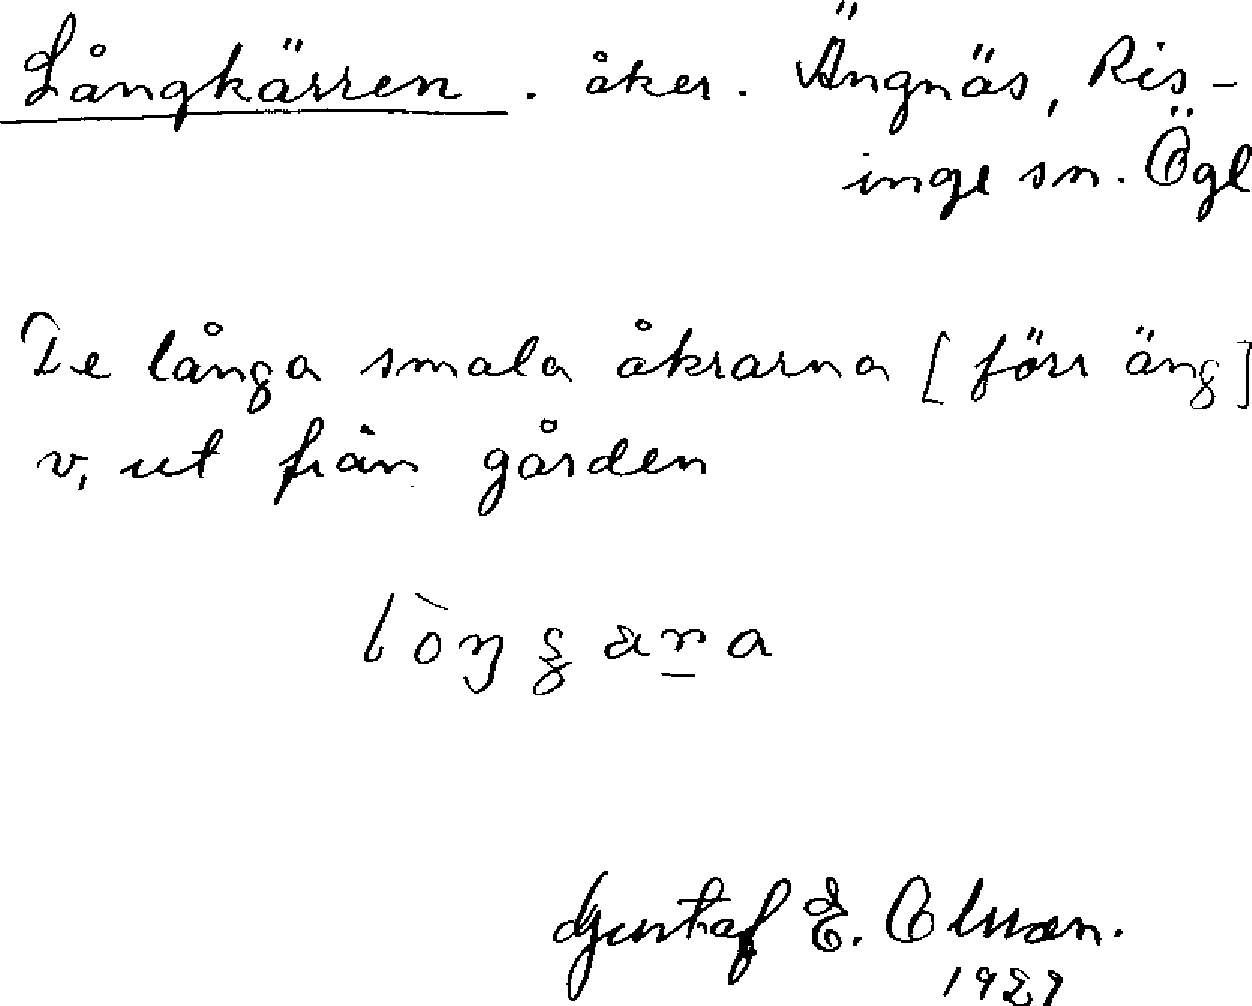 Långkärren. åker. Ängnäs, Ris-
inge sn. Ögl
De långa smala åkrarna [förr äng]
v. ut från gården
Gustaf E.
1929